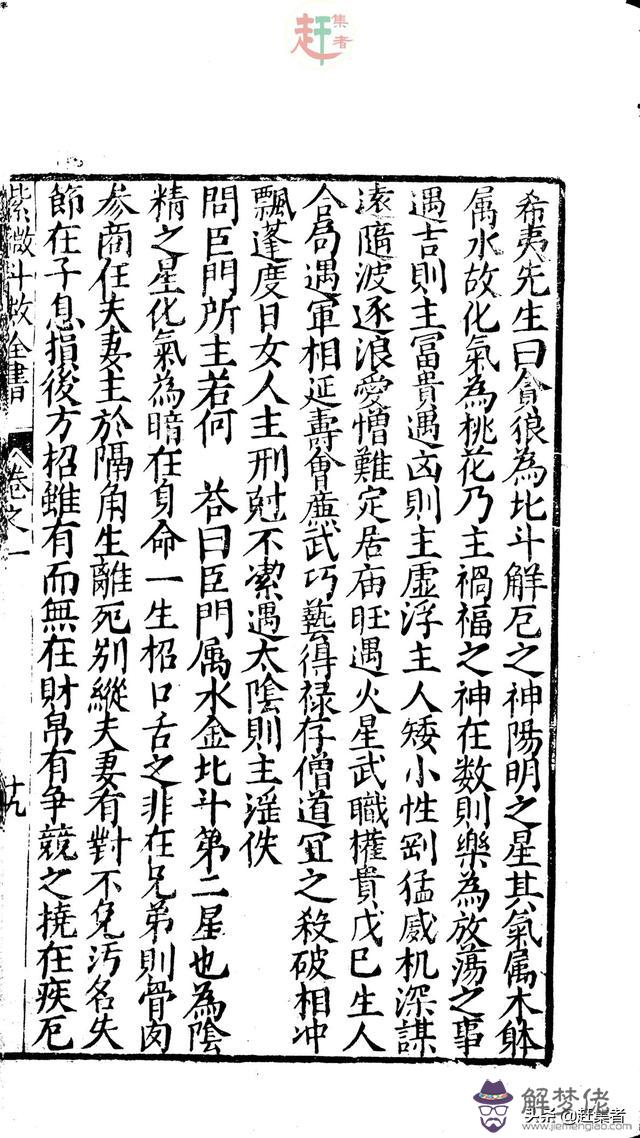 赶集者
希夷先生曰貪狼為北斗解厄之神陽明之星其氣属木躰
属水故化氣為桃花乃主禍福之神在数則樂為放蕩之事
遇吉則主冨貴遇凶則主虚浮主人矮小性剛猛威机深謀
遠隨波逐浪愛憎難定居庙旺遇火星武職權貴戊巳生人
合局遇軍相延壽會廉武巧藝得禄存僧道宜之殺破相冲
飄蓬度日女人主刑尅不潔遇太陰則主淫佚
問巨門所主若何　荅曰巨門属水金北斗第二星也為陰
精之星化氣為暗在身命一生招口舌之非在兄弟則骨肉
參商在夫妻主於隔角生離死别縱夫妻有對不免污名失
節在子息損後方招雖有而無在財帛有争競之撓在疾厄
紫微斗数全書　卷之一　十九
解梦佬
头条@赶集者
www.jiemenglao.com